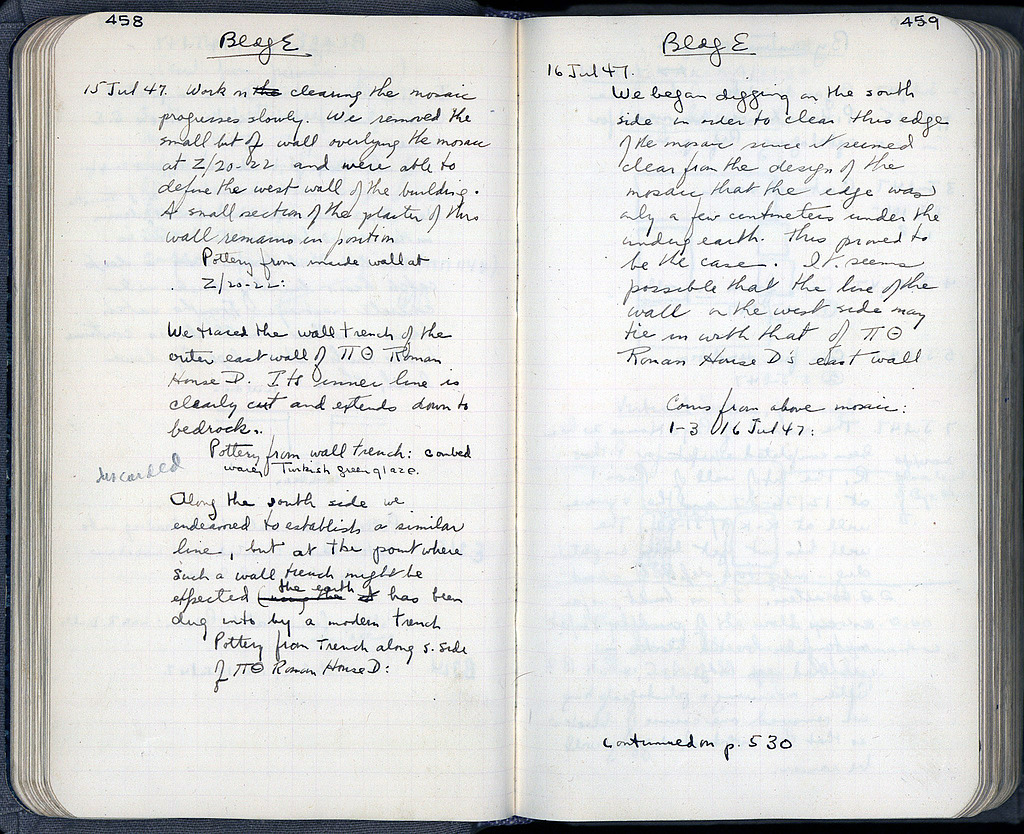 458
Bldg E
15 Jul 47. Work in the clearing the mosaic
progresses slowly. We removed the
small bit of wall overlying the mosaic
at Z/20-22 and were able to
define the west wall of the building.
A small section of the plaster of this
wall remains in position
Pottery from inside wall at
Z/20-22:
We traced the wall trench of the
outer east wall of ΠΘ Roman
House D. Its inner line is
clearly cut and extends down to
bedrock.
Pottery from wall trench: combed
ware, Turkish green glaze.
discarded
Along the south side we
endeavored to establish a similar
line, but at the point where
such a wall trench might be
expected the earth has been
dug into by a modern trench
Pottery from Trench along s. side
of ΠΘ Roman House D:
459
Bldg E
16 Jul 47.
We began digging on the south
side in order to clear this edge
of the mosaic since it seemed
clear from the design of the
mosaic that the edge was
only a few centimeters under the
undug earth. This proved to
be the case. It seems
possible that the line of the
wall on the west side may
tie in with that of ΠΘ
Roman House D's east wall
Coins from above mosaic:
1-3 16 Jul 47:
Continued on p. 530